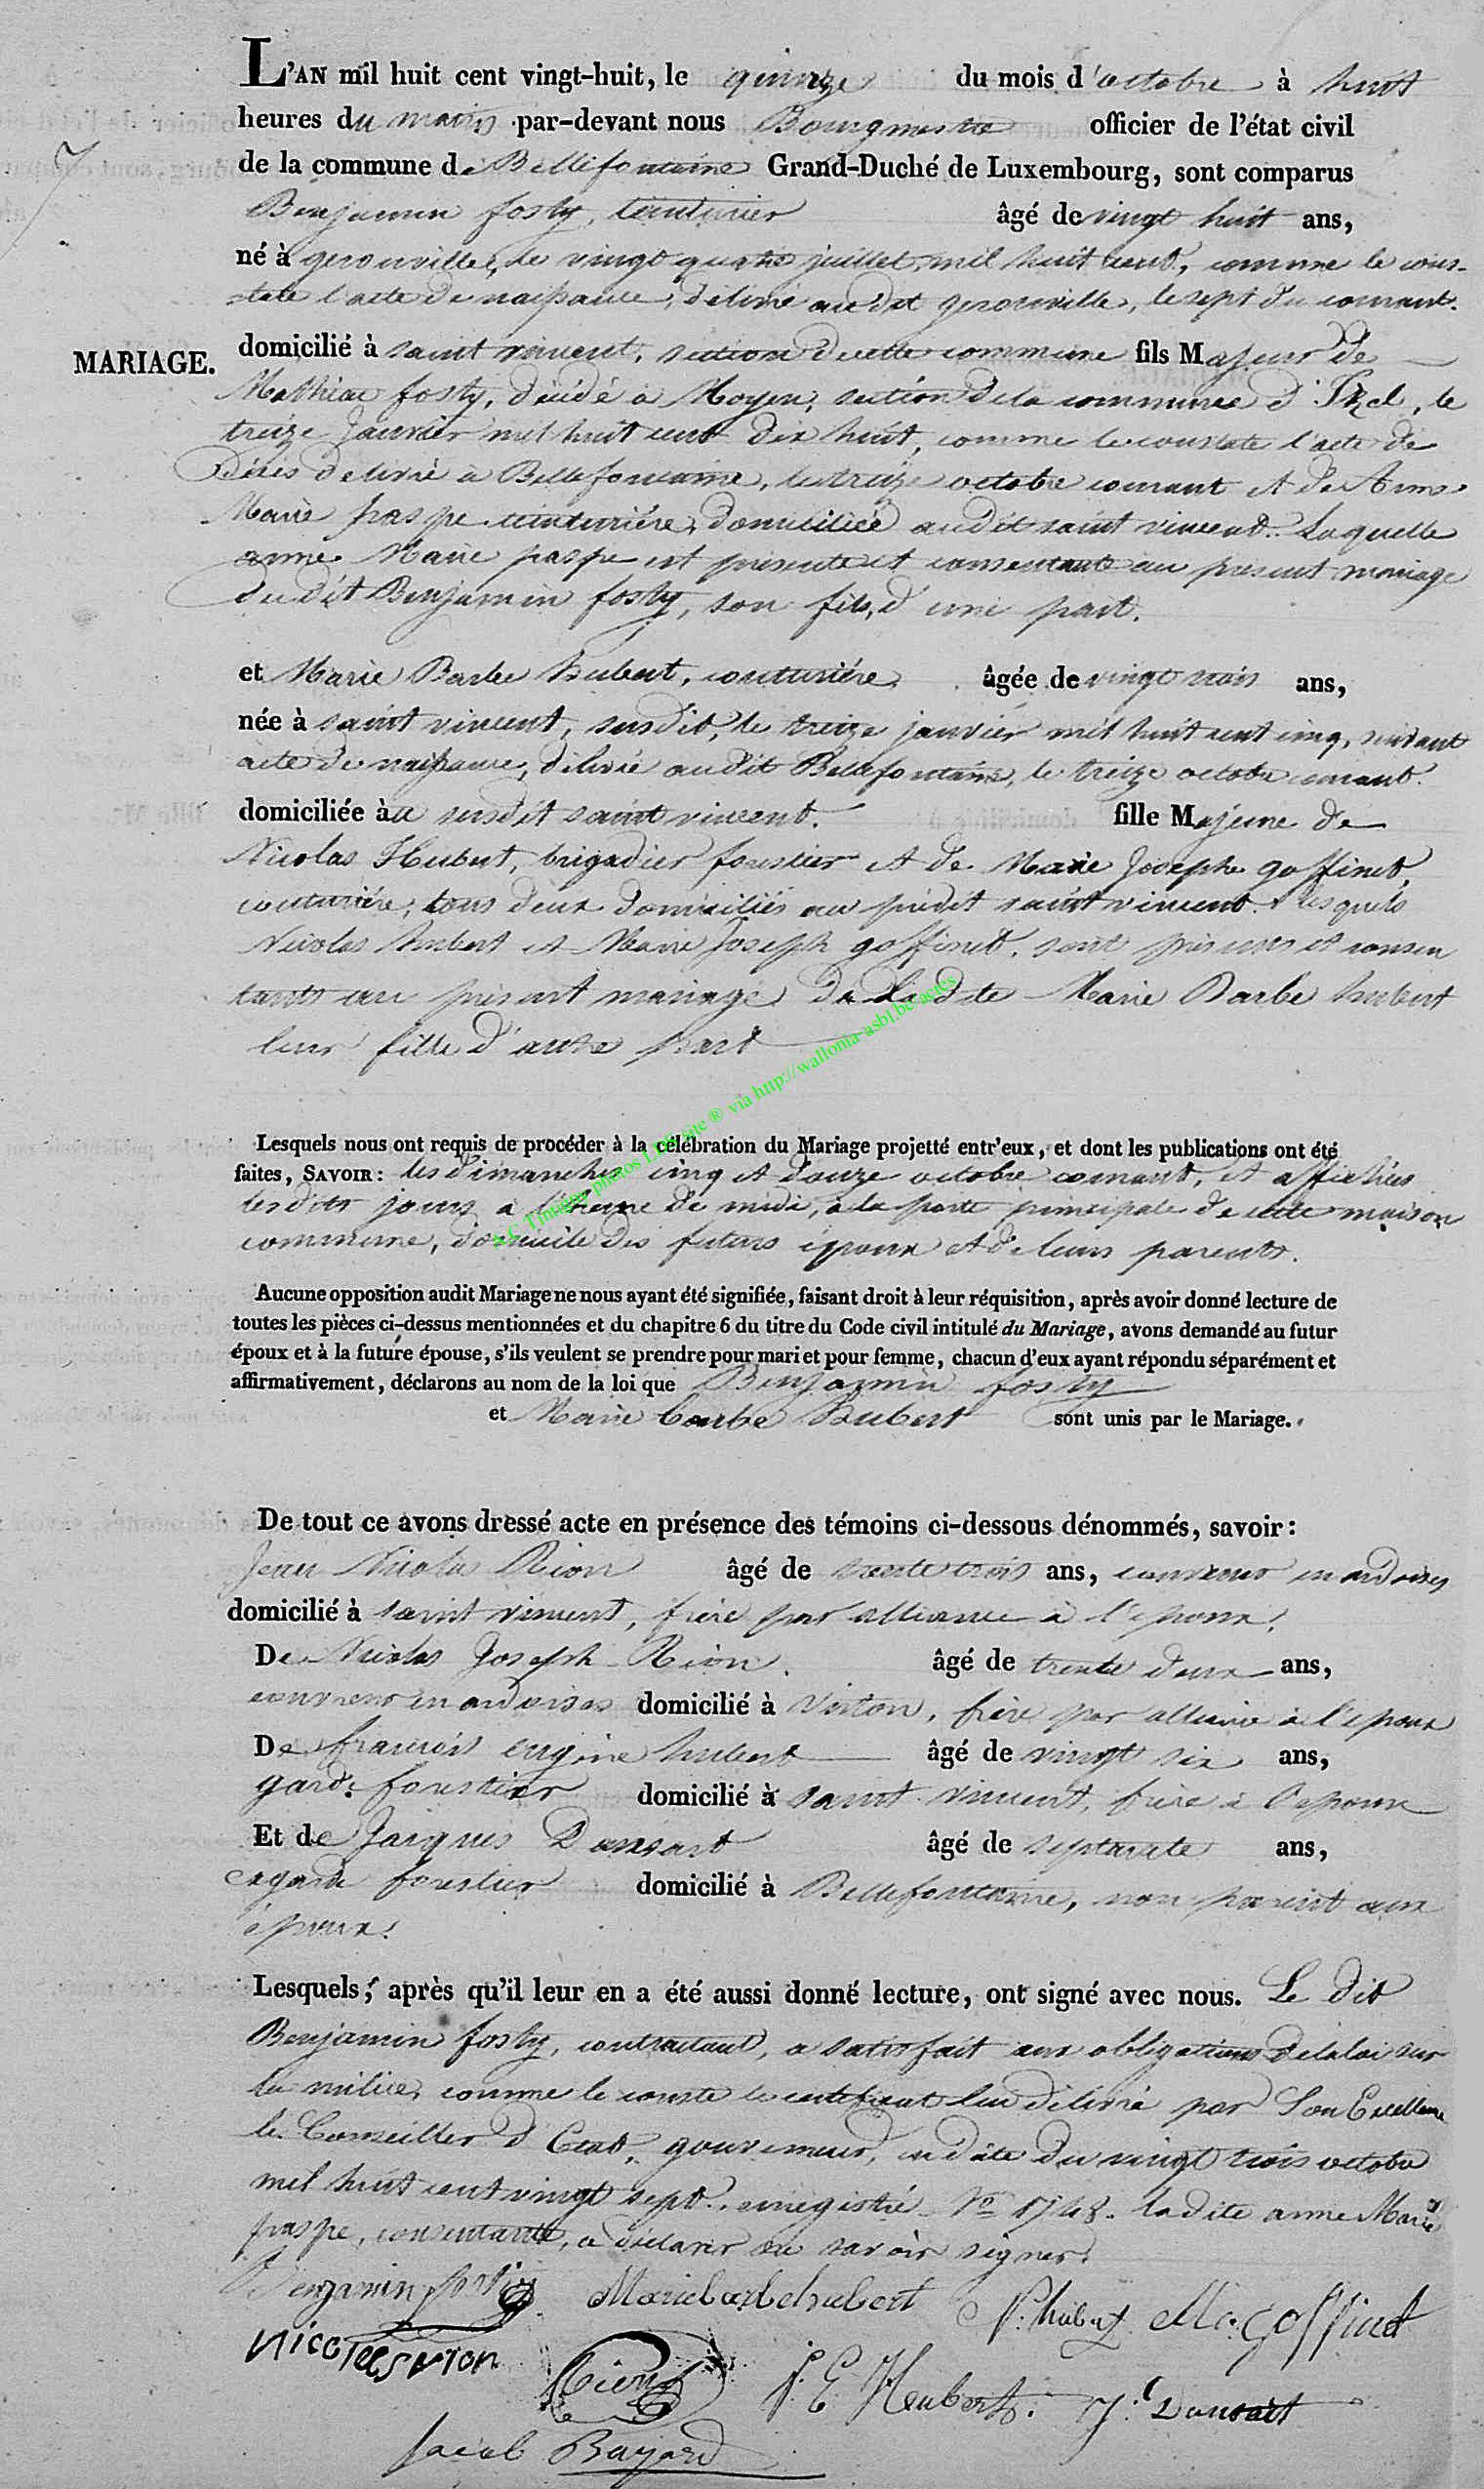 L'AN mil huit cent vingt-huit, le quinze du mois d'octobre à huit
heures du matin par-devant nous Bourgmestre officier de l'état civil
de la commune de Bellefontaine Grand-Duché de Luxembourg, sont comparus
Benjamin fosty, teinturier âgé de vingt huit ans,
né à gerouville, le vingt quatre juillet, mil huit cent, comme le cons-
-tate l'acte de naissance, délivré audit gerouville, le sept du courant.
MARIAGE.
domicilié à saint vincent, section de cette commune fils Majeur de
Mathieu fosty, décédé à Moyen, section de la commune d'Izel, le
treize janvier mil huit cent dix huit, comme le constate l'acte de
décès délivré à Bellefontaine, le treize octobre courant et de Anne
Marie praspe teinturière, domiciliée audit saint vincent. Laquelle
anne Marie paspe est présente et consentante au present mariage
du dit Benjamin fosty, son fils, d'une part.
et Marie Barbe hubert, couturière, âgée de vingt trois ans,
née à saint vincent, susdit, le treize janvier mil huit cent cinq, suivant
acte de naissance, délivré audit Bellefontaine, le treize octobre courant.
domiciliée àu susdit saint vincent. fille Majeure de
Nicolas Hubert, brigadier forestier et de Marie Josephe goffinet,
couturière, tous deux domiciliés au prédit saint vincent. lesquels
Nicolas hubert et Marie Joseph goffinet, sont présents et consen
tants au présent mariage de ladite Marie Barbe hubert
leur fille d'autre part
Lesquels nous ont requis de procéder à la célébration du Mariage projetté entr'eux, et dont les publications ont été
faites, SAVOIR: les dimanches cinq et douze octobre courant, et affichées
lesdits jours à l'heure de midi, à la porte principale de cette maison
commune, domicile des futurs époux et de leurs parents.
Aucune opposition audit Mariage ne nous ayant été signifiée, faisant droit à leur réquisition, après avoir donné lecture de
toutes les pièces ci-dessus mentionnées et du chapitre 6 du titre du Code civil intitulé du Mariage, avons demandé au futur
époux et à la future épouse, s'ils veulent se prendre pour mari et pour femme, chacun d'eux ayant répondu séparément et
affirmativement, déclarons au nom de la loi que Benjamin fosty
et Marie barbe hubert sont unis par le Mariage.
De tout ce avons dressé acte en présence des témoins ci-dessous dénommés, savoir:
Jean Nicolas Rion âgé de trente trois ans, couvreur en ardoises
domicilié à saint vincent, frère par alliance à l'epoux,
De Nicolas Joseph Rion. âgé de trente deux ans,
couvreur en ardoises domicilié à Virton, frère par alliance à l'epoux
De françois eugine hubert âgé de vingt six ans,
garde forestier domicilié à saint vincent, frère à l'epouse
Et de Jacques Dansart âgé de septante ans,
exgarde forestier domicilié à Bellefontaine, non parent aux
époux.
Lesquels, après qu'il leur en a été aussi donné lecture, ont signé avec nous. Le dit
Benjamin fosty, contractant, a satisfait aux obligations de la loi sur
la milice, comme le conste le certificat lui délivré par Son Excellence
le Conseiller d'Etat, gouverneur, en date du vingt trois octobre
mil huit cent vingt sept. enregistré No 1748. ladite anne Marie
praspe, consentante, a déclaré ne savoir signer.
Benjamin fosty Mariebarbehubert N: hubert M: goffinet
Nicolas rion Rion f. E Heubert. J: Dansart
Jacob Bayard
A.C. Tintigny photos via http://wallonia-asbl.be/actes